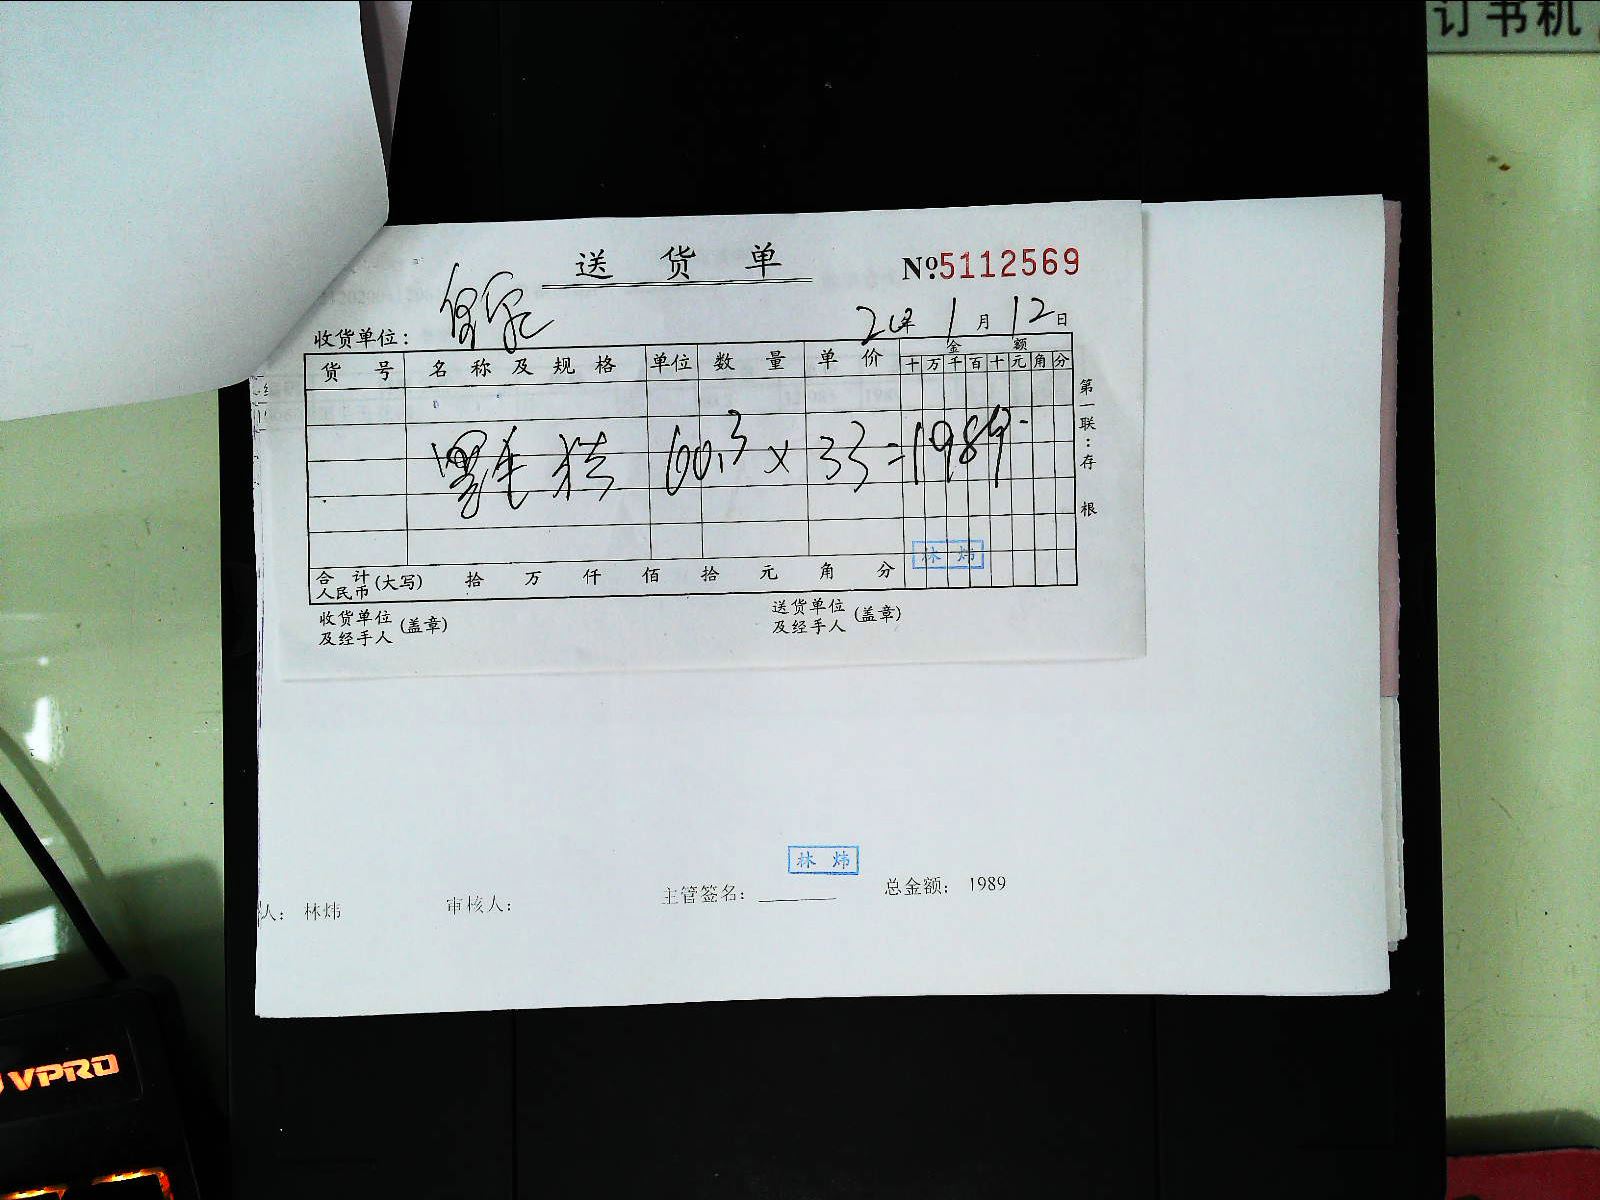 订书机
送 货 单
№5112569
收货单位：
20年 1月 12日
货 号 名 称 及 规 格 单位 数 量 单 价 金 额
十 万 千 百 十 元 角 分
黑毛猪 60.3 × 33 = 1989.-
第一联：存根
林 炜
合 计
人民币 (大写) 拾 万 仟 佰 拾 元 角 分
收货单位
及经手人 (盖章)
送货单位
及经手人 (盖章)
林 炜
人： 林炜 审核人： 主管签名：______ 总金额： 1989
VPRO